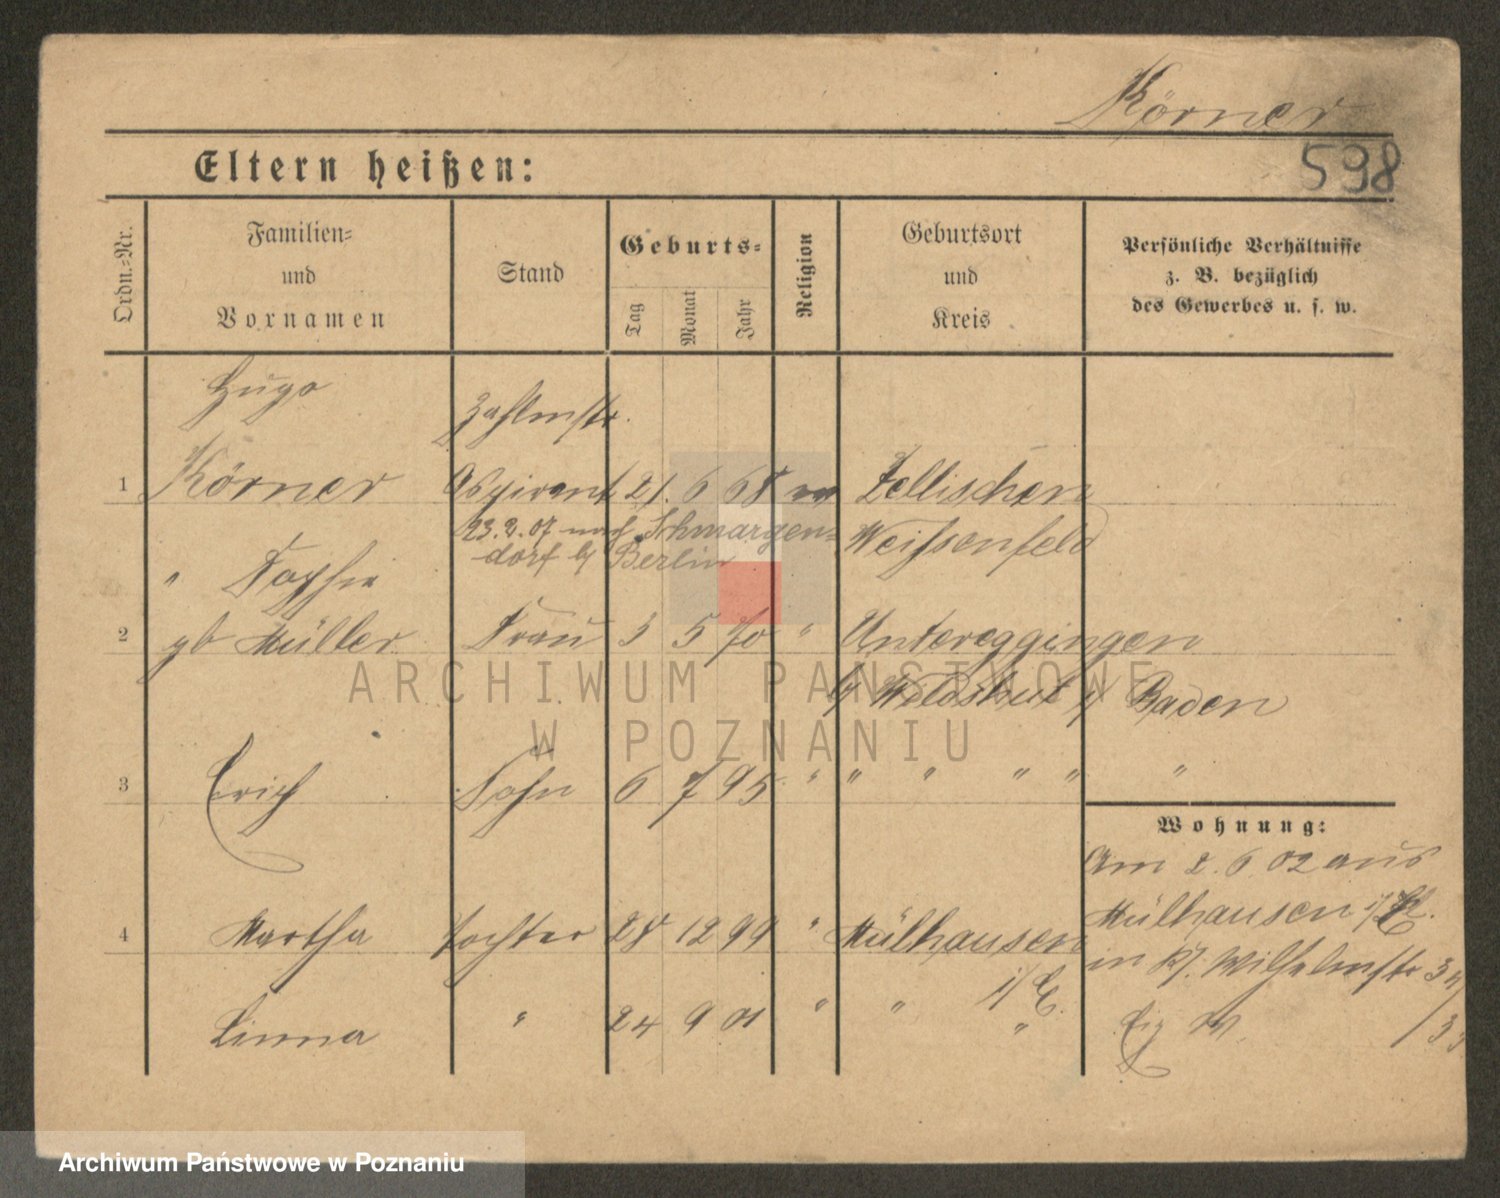 Körner
598
Eltern heißen:
Ordn.-Nr.
Familien-
und
Vornamen
Stand
Geburts-
Tag
Monat
Jahr
Religion
Geburtsort
und
Kreis
Persönliche Verhältnisse
z. B. bezüglich
des Gewerbes u. s. w.
Hugo
Zahlmstr.
1 Körner Aspirant 21. 6 68 Zellischen
23.2.07 nach Schmargen-
dorf b/ Berlin
Weissenfeld
" Sophie
2 gb Müller Frau 3 5 70 " Untereggingen
b/ Waldshut i/ Baden
3 Erich Sohn 6 7 95 " " " " " "
Wohnung:
Am 2.6.02 aus
Mülhausen i/E.
4 Martha Tochter 28 12 99 " Mülhausen
i/E.
in Wilhelmstr
Linna " 24 9 01 " " "
ARCHIWUM PAŃSTWOWE
W POZNANIU
Archiwum Państwowe w Poznaniu